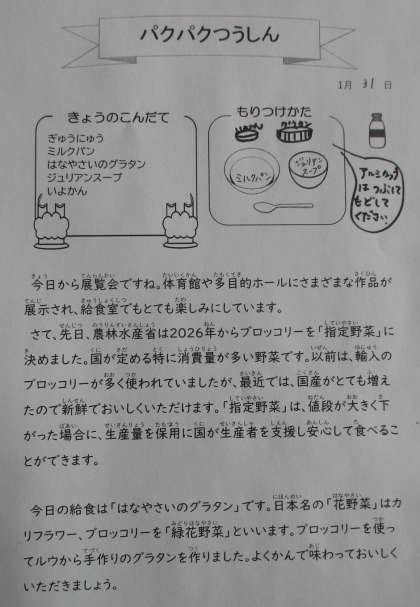 パクパクつうしん
1月 31 日
きょうのこんだて
ぎゅうにゅう
ミルクパン
はなやさいのグラタン
ジュリアンスープ
いよかん
もりつけかた
グラタン
ミルクパン
ジュリアン
スープ
アルミカップ
はつぶして
もどして
ください。
今日から展覧会ですね。体育館や多目的ホールにさまざまな作品が
展示され、給食室でもとても楽しみにしています。
さて、先日、農林水産省は2026年からブロッコリーを「指定野菜」に
決めました。国が定める特に消費量が多い野菜です。以前は、輸入の
ブロッコリーが多く使われていましたが、最近では、国産がとても増え
たので新鮮でおいしくいただけます。「指定野菜」は、値段が大きく下
がった場合に、生産量を保用に国が生産者を支援し安心して食べるこ
とができます。
今日の給食は「はなやさいのグラタン」です。日本名の「花野菜」はカ
リフラワー、ブロッコリーを「緑花野菜」といいます。ブロッコリーを使っ
てルウから手作りのグラタンを作りました。よくかんで味わっておいしく
いただきましょう。